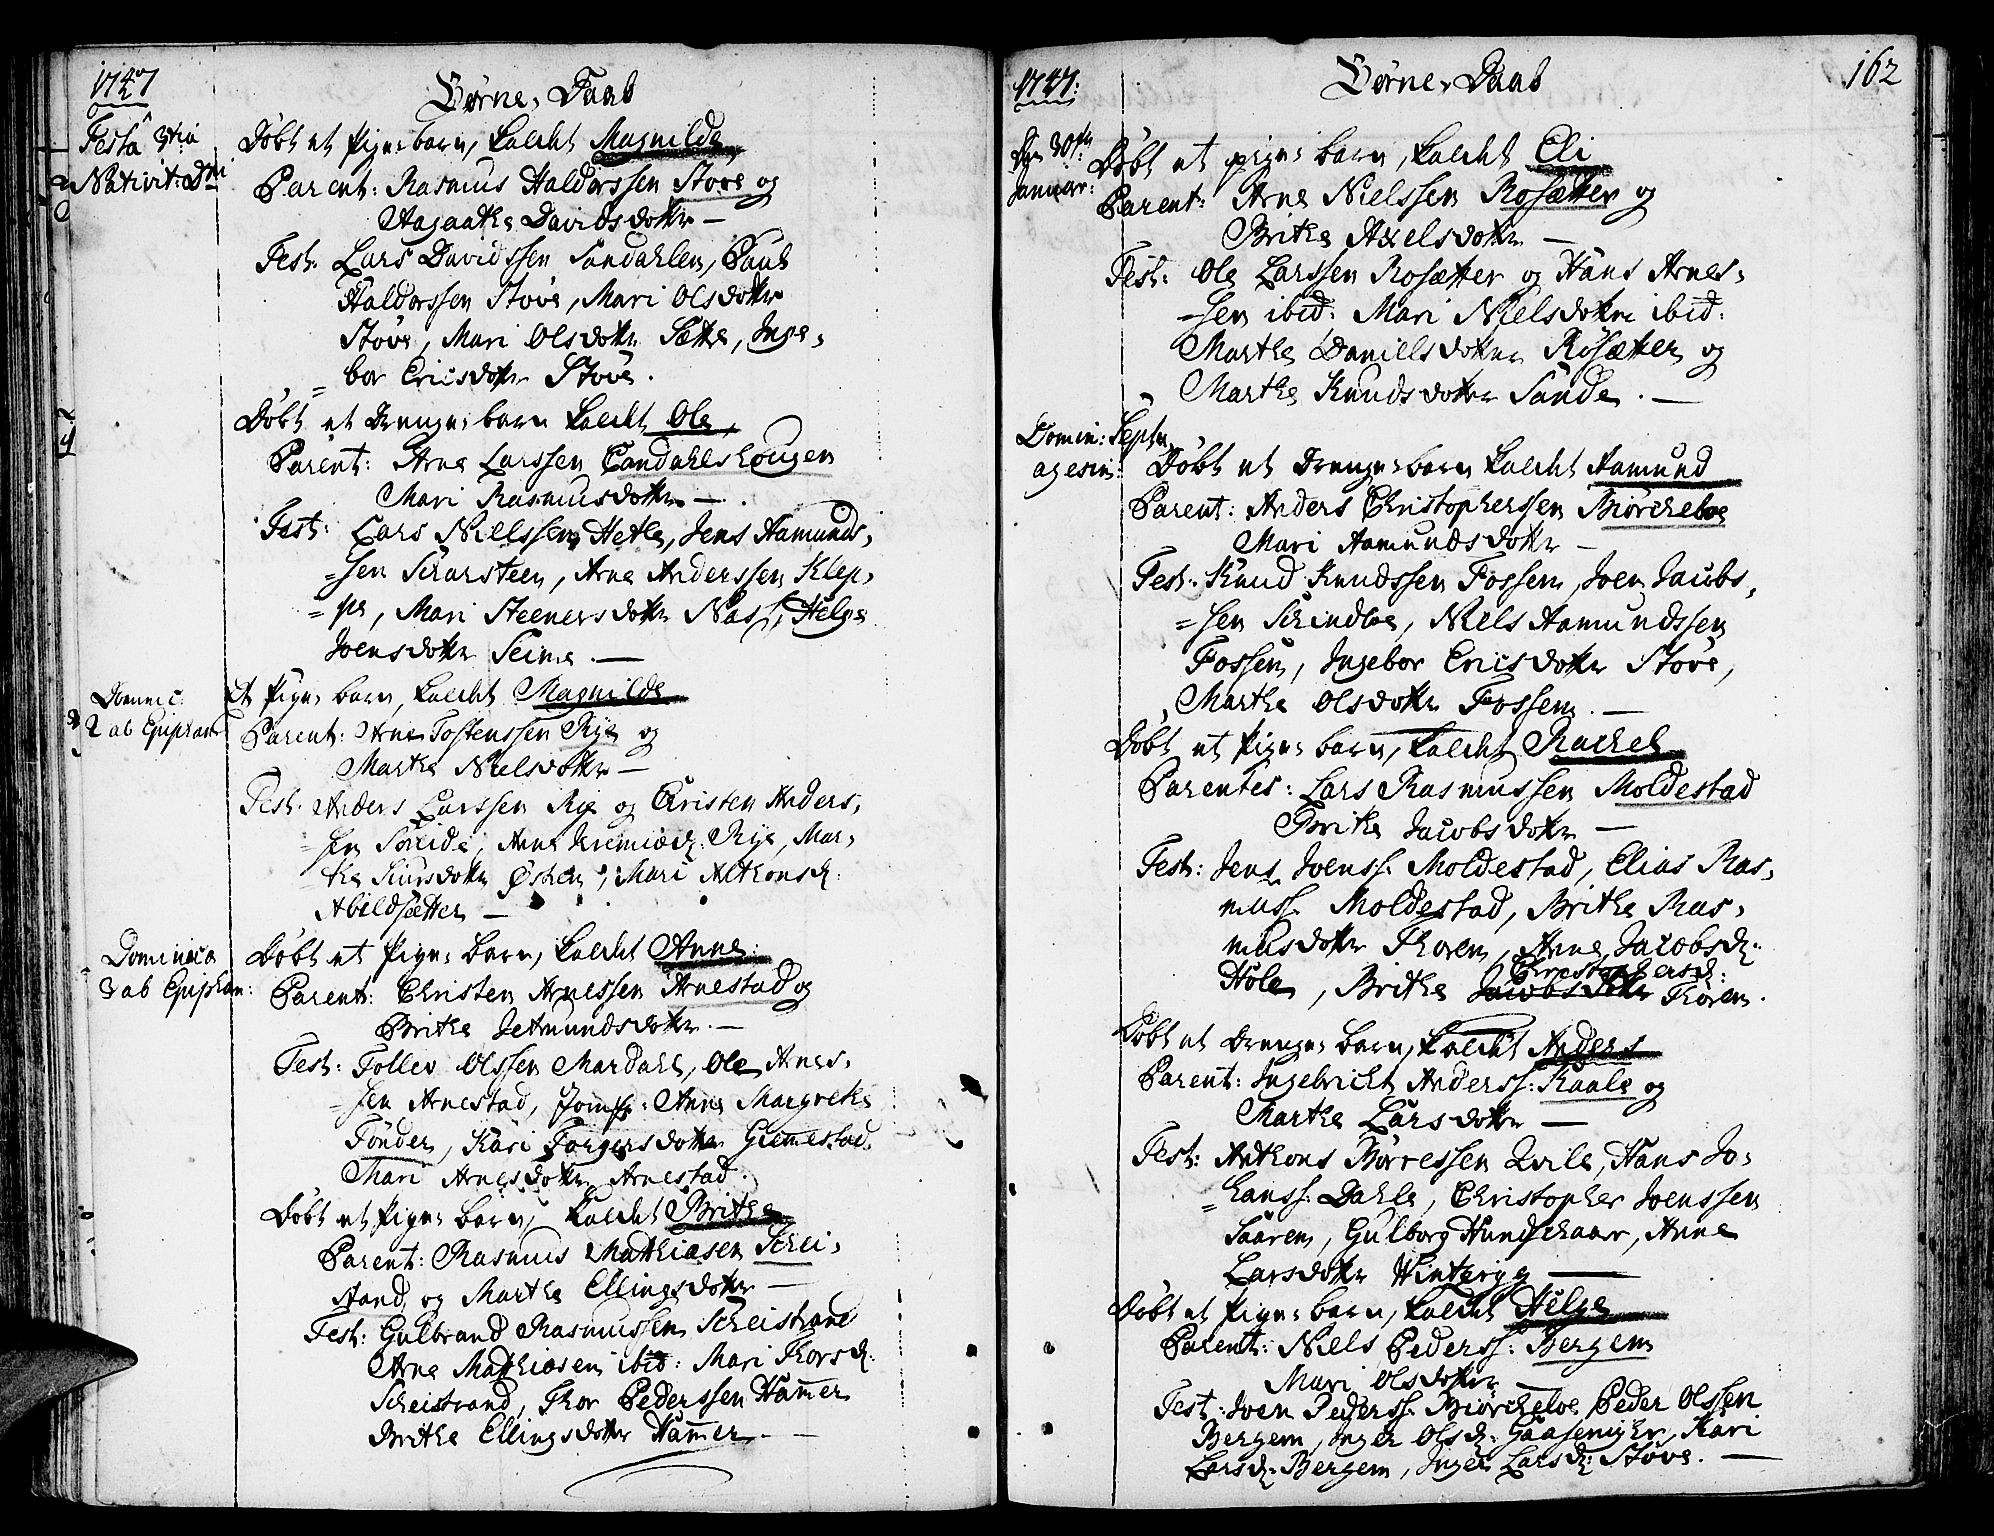 1747
Børne-Daab
Festo 3tia
Nativit: Dni
Døbt et Pige-barn, kaldet Magnilde
Parent: Rasmus Haldorssen Støve og
Aagaathe Davidsdotter —
Test: Lars Davidssen Sandahlen, Paul
Haldorssen Støve, Mari Olsdotter
Støve, Mari Olsdotter Sætte, Inge-
bor Ericsdotter Støve.
Døbt et Drenge-barn kaldet Ole,
Parent: Arne Larssen Candahlshougen
Mari Rasmusdotter —
Test: Lars Nielssen Hetle, Jens Aamunds-
sen Scharsteen, Arne Anderssen Klep-
pe, Mari Steenersdotter Nass, Helge
Joensdotter Seime. —
Domnic:
2 ab Epiphan
Et Pige-barn, kaldet Magnilde
Parent: Arne Tostenssen Rye og
Marthe Nielsdotter —
Test: Anders Larssen Rye og Christen Anders-
sen Søreide, Anne Jeremiæd: Rye, Mar-
the Siursdotter Østen, Mari Althonsd:
Abildsætter —
Dominica
3 ab Epiphan:
Døbt et Pige-barn, kaldet Anne:
Parent: Christen Arnessen Arnestad og
Brithe Jetmundsdotter. —
Test: Follev Olssen Mardahl, Ole Arnes-
sen Arnestad, Jomfr: Anne Margrethe
Fønder, Kari Torgersdotter Giemmestad
Mari Arnesdotter Arnestad.
Døbt et Pige-barn, kaldet Brithe
Parent: Rasmus Mathiasen Schei-
stand, og Marthe Ellingsdotter —
Test: Gulbrand Rasmussen Scheistrand
Arne Mathiasen ibid: Mari Thorsd:
Scheistrand, Thor Pederssen Hammer
Brithe Ellingsdotter Hammer. —
1747:
Børne-Daab
162
Den 30te
Januar:
Døbt et pige-barn, kaldet Eli
Parent: Arne Nielssen Rosætter og
Brithe Axelsdotter —
Test: Ole Larssen Rosætter og Hans Arnes-
sen ibid: Mari Nielsdotter ibid:
Marthe Danielsdotter Rosætter og
Marthe Knudsdotter Sande. —
Domin: Septu
agesim:
Døbt et Drenge-barn kaldet Aamund
Parent: Anders Christophersen Biørcheloe
Mari Aamundsdotter —
Test: Knud Knudssen Fossen, Joen Jacobs-
sen Schindloe, Niels Aamundssen
Fossen, Ingebor Ericsdotter Støve,
Marthe Olsdotter Fossen. —
Døbt et Pige-barn, kaldet Rachel
Parentes: Lars Rasmussen Moldestad
Brithe Jacobsdotter —
Test: Jens Joenss. Moldestad, Elias Ras-
muss. Moldestad, Brithe Ras-
musdotter Thoren, Anne Jacobsd:
Hole, Brithe Jacobsdotter Christophersd: Thoren.
Døbt et Drenge-barn, kaldet Anders
Parent: Ingebricht Anderss: Kaale og
Marthe Larsdotter —
Test: Anthons Børressen Qvile, Hans Jo-
hanss. Dahle, Christopher Joenssen
Saaren, Gulborg Hundschaar, Anne
Larsdotter Winteryg —
Døbt et Pige-barn, kaldet Helge
Parent: Niels Pederss: Bergem
Mari Olsdotter —
Test: Joen Pederss. Biørcheloe, Peder Olssen
Bergem, Inger Olsd: Gaasemyhr, Kari
Larsd: Bergem, Inger Larsd: Støve. —